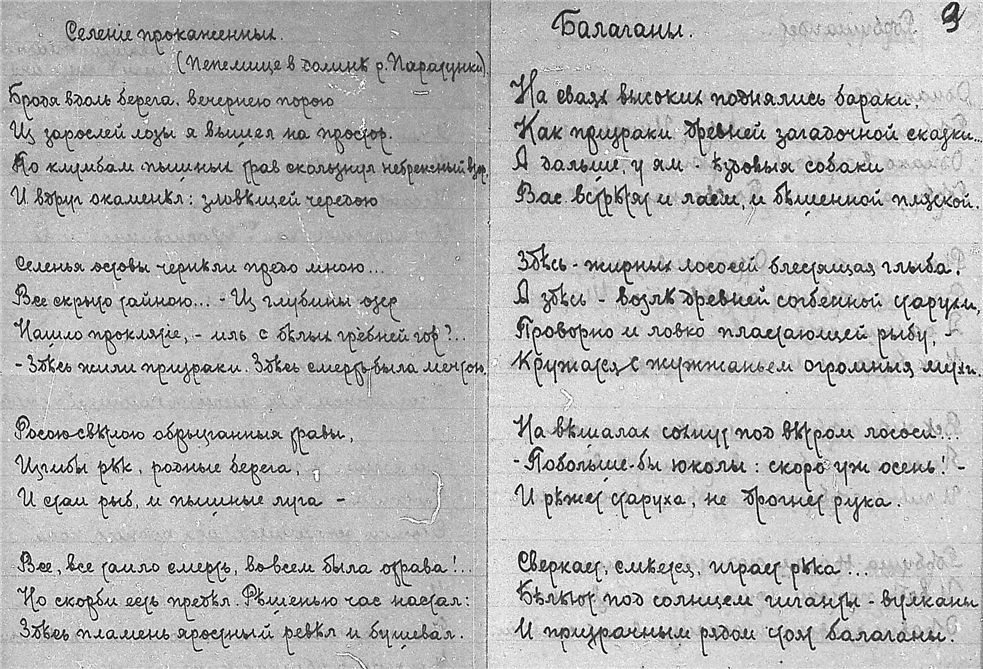 Селеніе прокаженных.
(Пепелище в долинѣ р. Паратунки)
Бродя вдоль берега, вечернею порою
Из зарослей лозы я вышел на простор.
По клумбам пышных трав скользнул небрежный взор,
И вдруг окаменѣл: зловѣщей чередою
Селенья остовы чернѣли предо мною...
Все скрыто тайною... - Из глубины озер
Нашло проклятіе, - иль с бѣлых гребней гор?...
- Здѣсь жили призраки. Здѣсь смерть была мечтою.
Росою свѣтлою обрызганныя травы,
Изгибы рѣк, родные берега,
И стаи рыб, и пышные луга -
Все, все таило смерть, во всем была отрава!...
Но скорби есть предѣл. Рѣшенью час настал:
Здѣсь пламень яростный ревѣл и бушевал.
9
Балаганы.
На сваях высоких поднялись бараки,
Как призраки древней загадочной сказки...
А дальше, у ям - ѣздовыя собаки
Вас встрѣтят и лаем, и бѣшенной пляской.
Здѣсь - жирных лососей блестящая глыба.
А здѣсь - возлѣ древней согбенной старухи,
Проворно и ловко пластающей рыбу, -
Кружатся с жужжаньем огромныя мухи.
На вѣшалах сохнут под вѣтром лососи...
- Побольше-бы юколы: скоро уж осень! -
И рѣжет старуха, не дрогнет рука.
Сверкает, смѣется, играет рѣка...
Бѣлѣют под солнцем гиганты - вулканы
И призрачным рядом стоят балаганы.